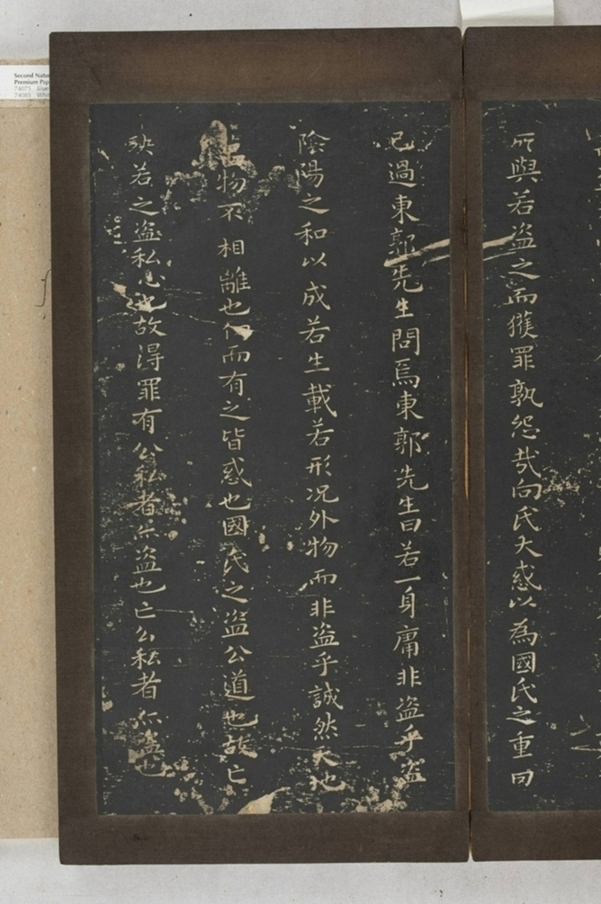 與若盗之而獲罪孰怨哉向氏大惑以為國氏之重
已過東郭先生問焉東郭先生曰若一身庸非盗乎盗
陰陽之和以成若生載若形况外物而非盗乎誠然天地
物不相離也仞而有之皆惑也國氏之盗公道也故亡
殃若之盗私心也故得罪有公私者亦盗也亡公私者亦盗也
Second Natu
Premium Pap
74075
74085